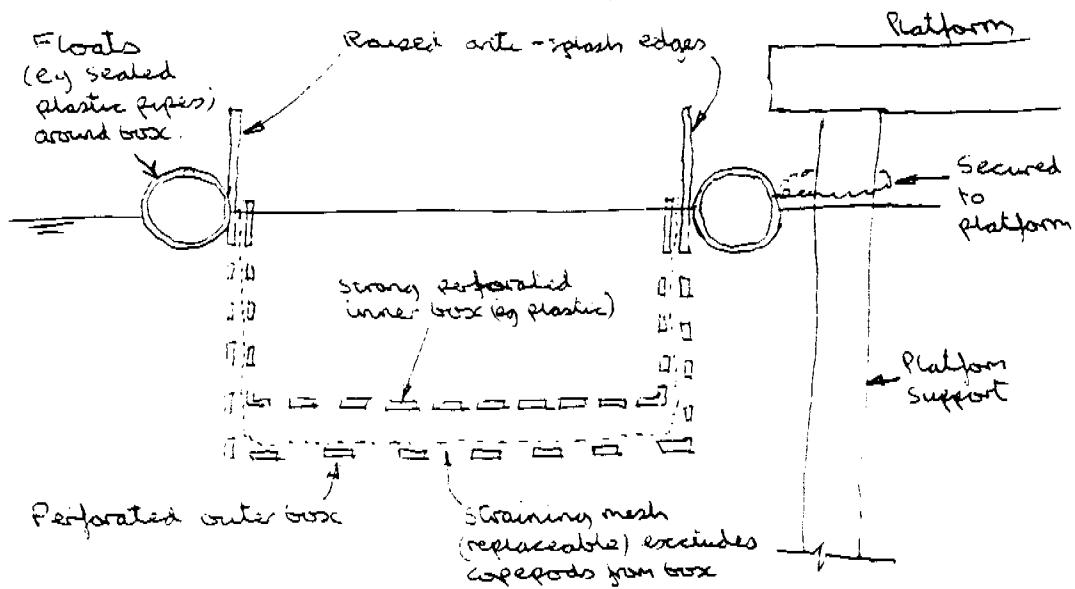 Floats
(eg sealed
plastic pipes)
around box.
Raised anti-splash edges
Platform
Secured
to
platform
Strong perforated
inner box (eg plastic)
Platform
Support
Perforated outer box
Straining mesh
(replaceable) excludes
copepods from box